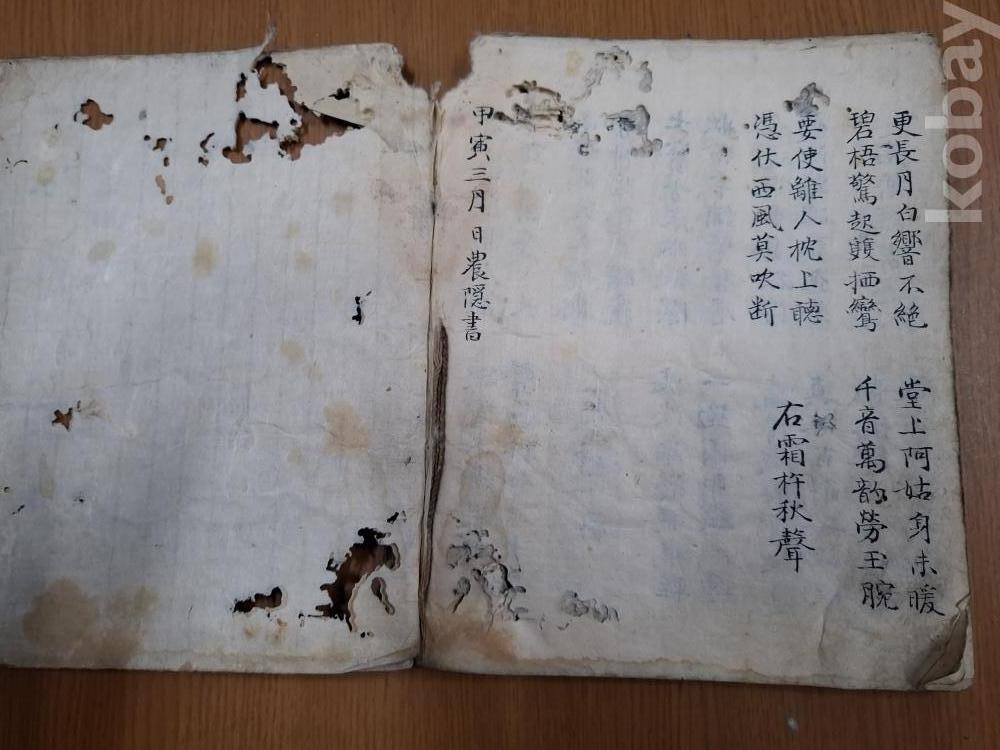 更長月白響不絶 堂上阿姑身未暖
碧梧驚起雙栖鸞 千音萬韵勞玉腕
要使離人枕上聽
憑仗西風莫吹断
右霜杵秋聲
甲寅三月日農隠書
kobay